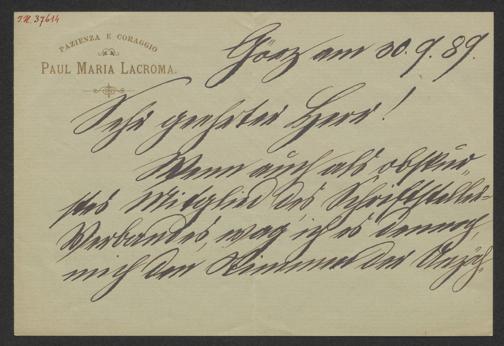 I.N. 37614
PAZIENZA E CORAGGIO
PAUL MARIA LACROMA.
Görz am 30.9.89.
Sehr geehrter Herr!
Wenn auch als obskur-
stes Mitglied des Schriftsteller-
Verbandes, wag' ich es dennoch,
mich den Stimmen der Anzäh-